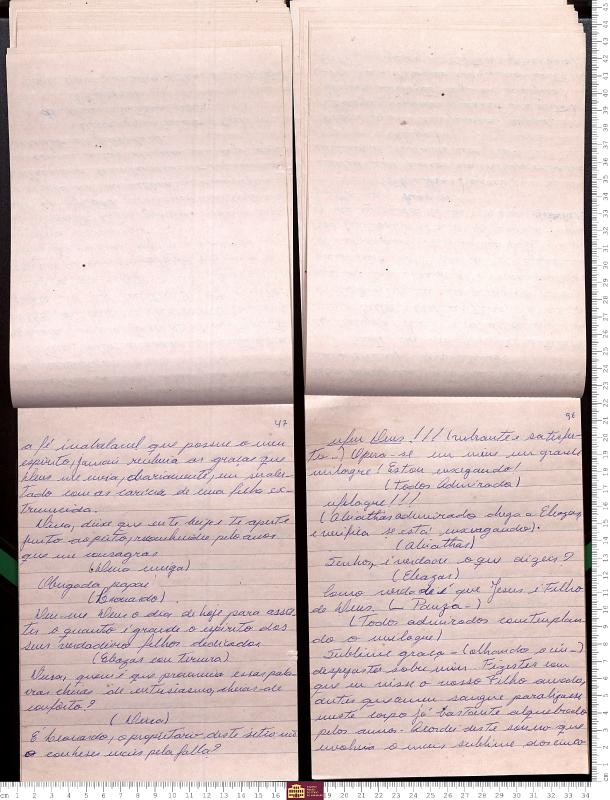 47
a fé inabalavel que possue o meu
espirito, jamais as graças que
Deus me envia, diariamente, em
com as caricia de uma filha ex-
tremecida.
Diva, deixe que eu te beije e te aperte
junto ao peito, pelo amor
que me consagras
(Diva meiga)
Obrigada, papai
(Leonardo)
Deu-me Deus o dia de hoje para assis-
tir o quanto é grande o espirito dos
seus verdadeiros filhos dedicados
(Eleazar com ternura)
Diva, quem é que pronuncia essas pala-
vras cheias de entusiasmo, cheias de
conforto?
(Diva)
É Leonardo, o proprietario deste sitio não
o conheces mais pela falla?
98
Deus!!! (vibrante e satisfei-
to -) Opera-se em mim um grande
milagre! Estou enxergando!
(Todos admirados)
Milagre!!!
(Aliathas admirado chega a Eleazar,
e verifica se está enxergando).
(Aliathas)
Senhor, é verdade o que dizeis?
(Eleazar)
Como verdade é que Jesus é Filho
de Deus. (- Pauza -)
(Todos admirados contemplan-
do o milagre)
Sublime graça - (olhando o céu -)
despejastes sobre mim. Fizestes com
que eu visse o vosso Filho amado,
antes que o meu sangue paralizasse
neste corpo já bastante alquebrado
pelos annos. deste somno que
envolvia o mais sublime dos